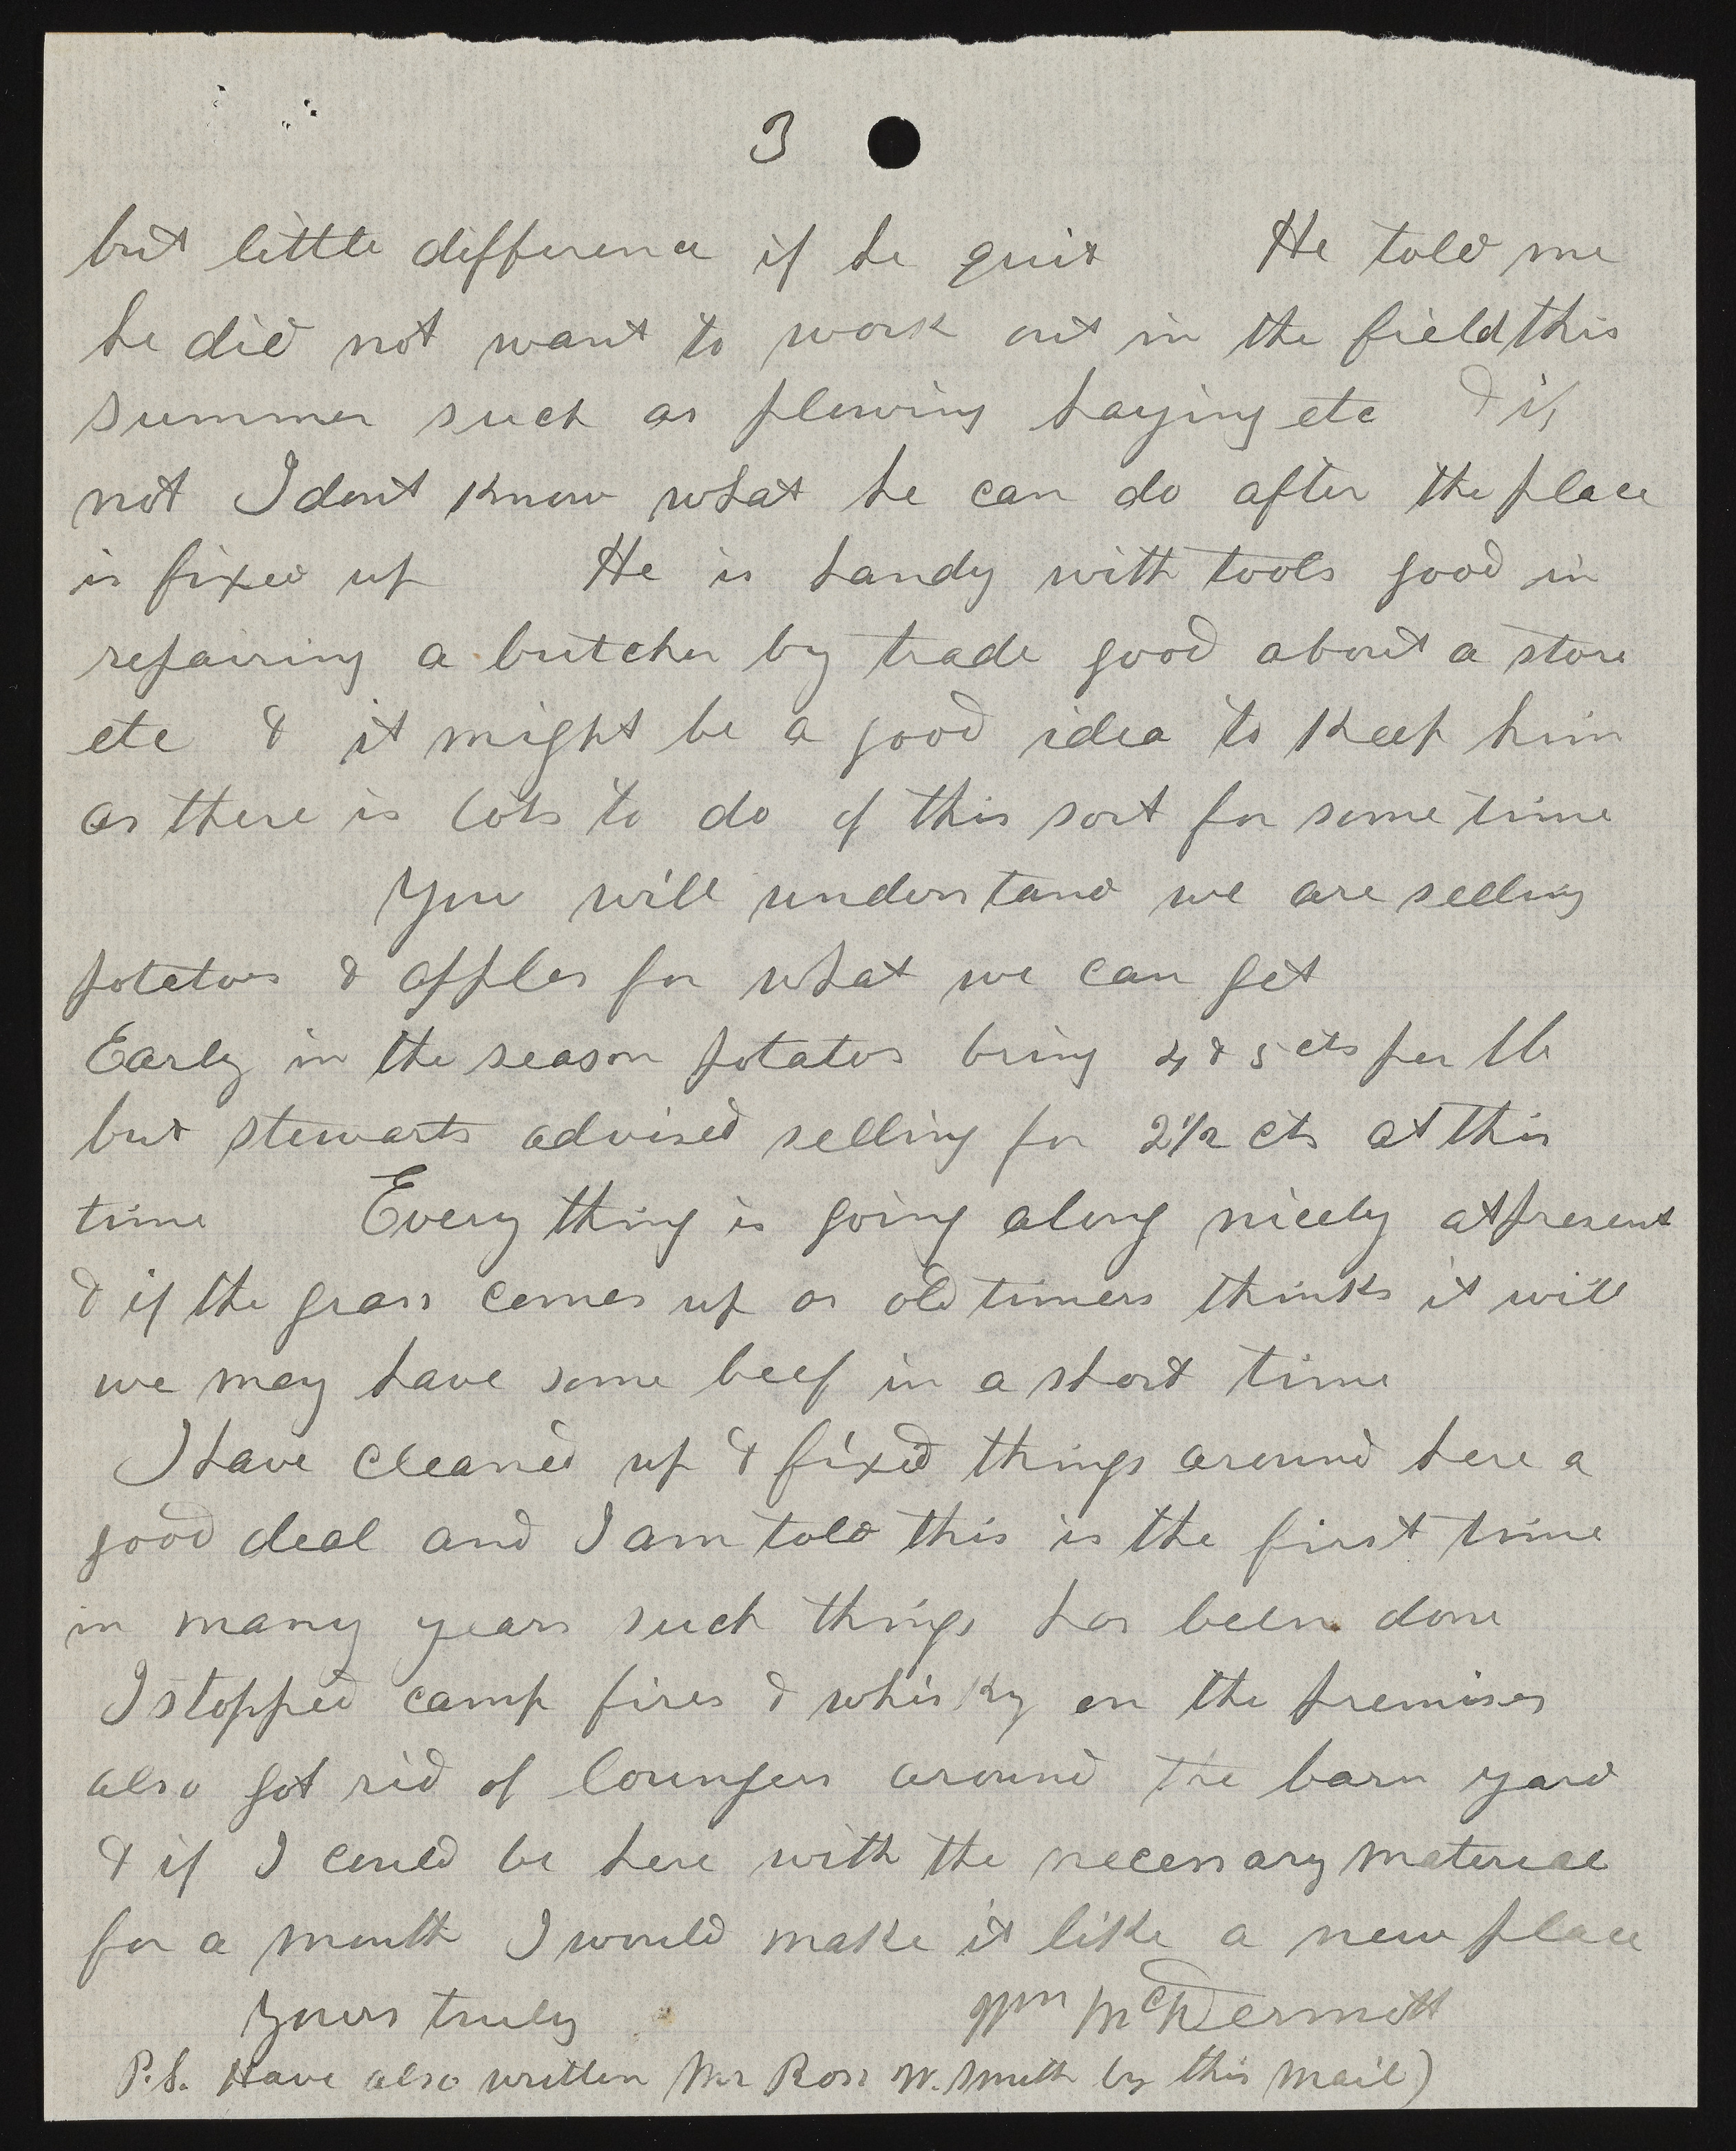 3
but little difference if he quit He told me
he did not want to work out in the field this
summer such as plowing haying etc & if
not I dont know what he can do after the place
is fixed up He is handy with tools good in
repairing a butcher by trade good about a store
etc & it might be a good idea to keep him
as there is lots to do of this sort for some time
You will understand we are selling
potatoes & apples for what we can get
Early in the season potatos bring 4 & 5 cts per lb
but stewarts advised selling for 2 1/2 cts at this
time Every thing is going along nicely at present
& if the grass comes up as old timers thinks it will
we may have some beef in a short time
I have cleaned up & fixed things around here a
good deal and I am told this is the first time
in many years such things has been done
I stopped camp fires & whisky on the premises
also got rid of loungers around the barn yard
& if I could be here with the necessary material
for a month I would make it like a new place
Yours truly Wm McDermott
P.S. Have also written Mr Ross W. Smith by this mail)